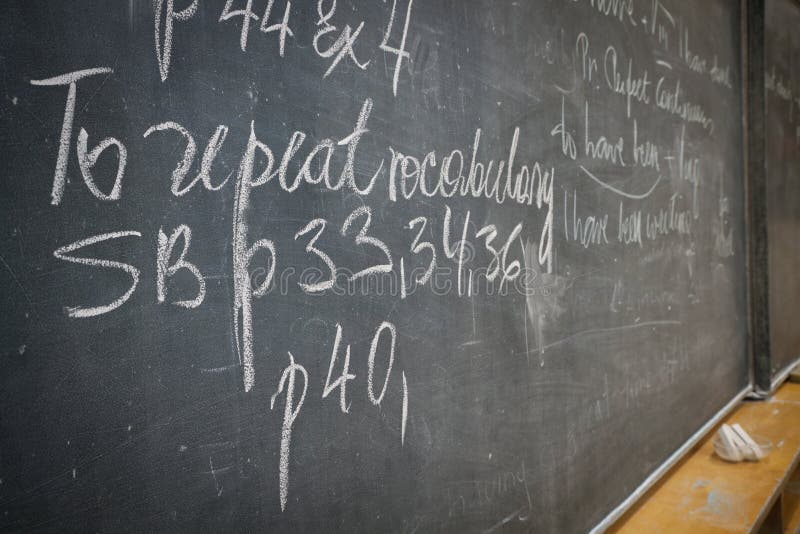 p 44 Ex 4
To repeat vocabulary
SB p 33, 34, 36
p 40,
have
I have
Pr. Perfect Continuous
to have been + Ving
I have been